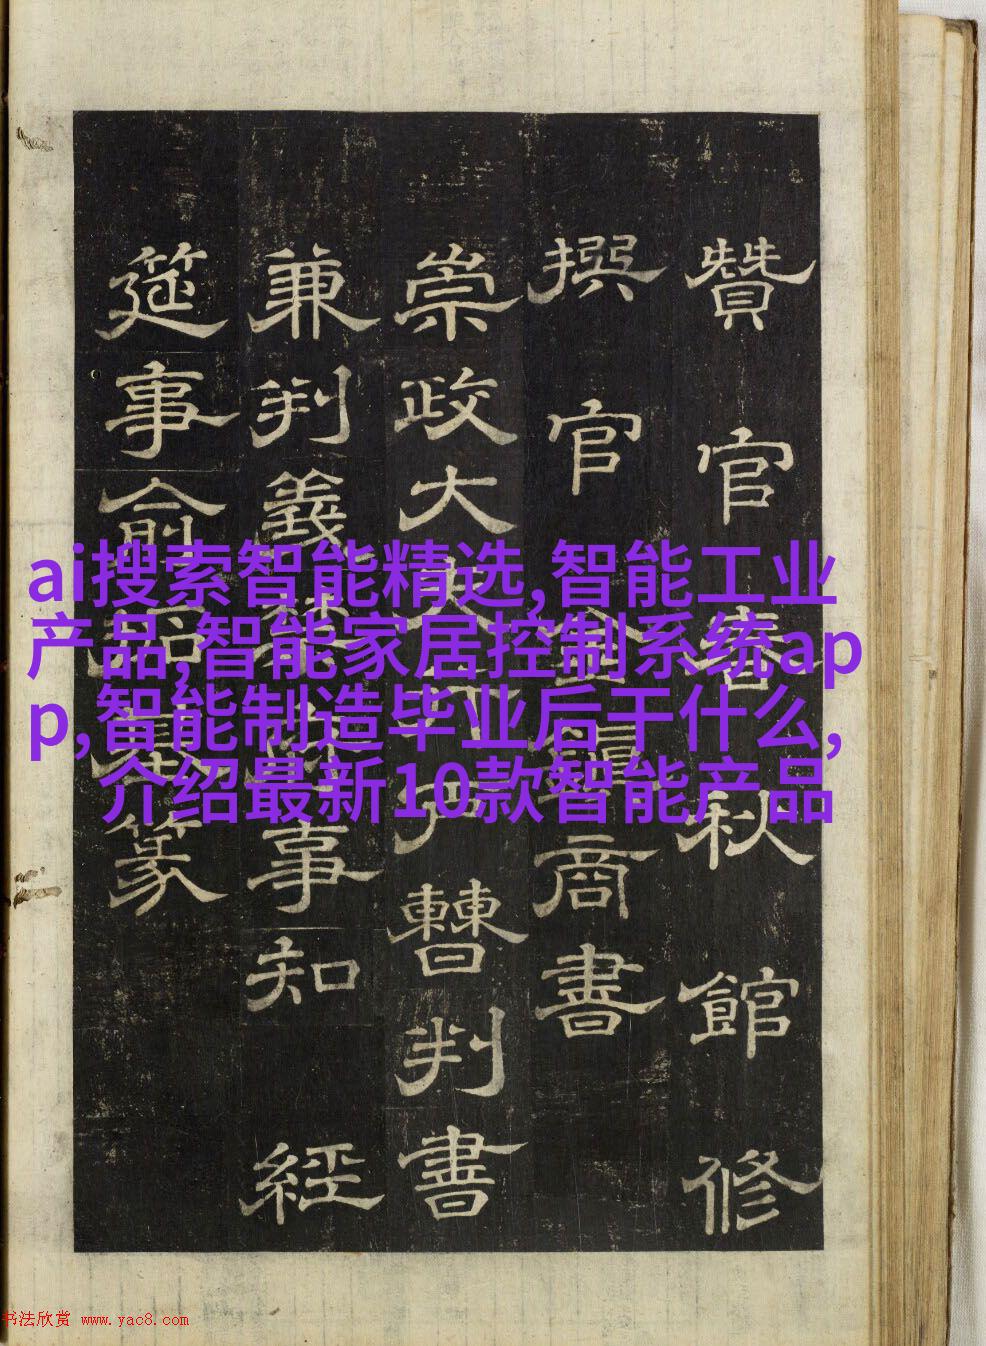 贊官春秋館修
撰官商書
崇政大夫行戶曹判書
兼判義禁府事知經
筵事俞拓基篆
ai搜索智能精选,智能工业
产品,智能家居控制系统ap
p,智能制造毕业后干什么,
介绍最新10款智能产品
书法欣赏 www.yac8.com